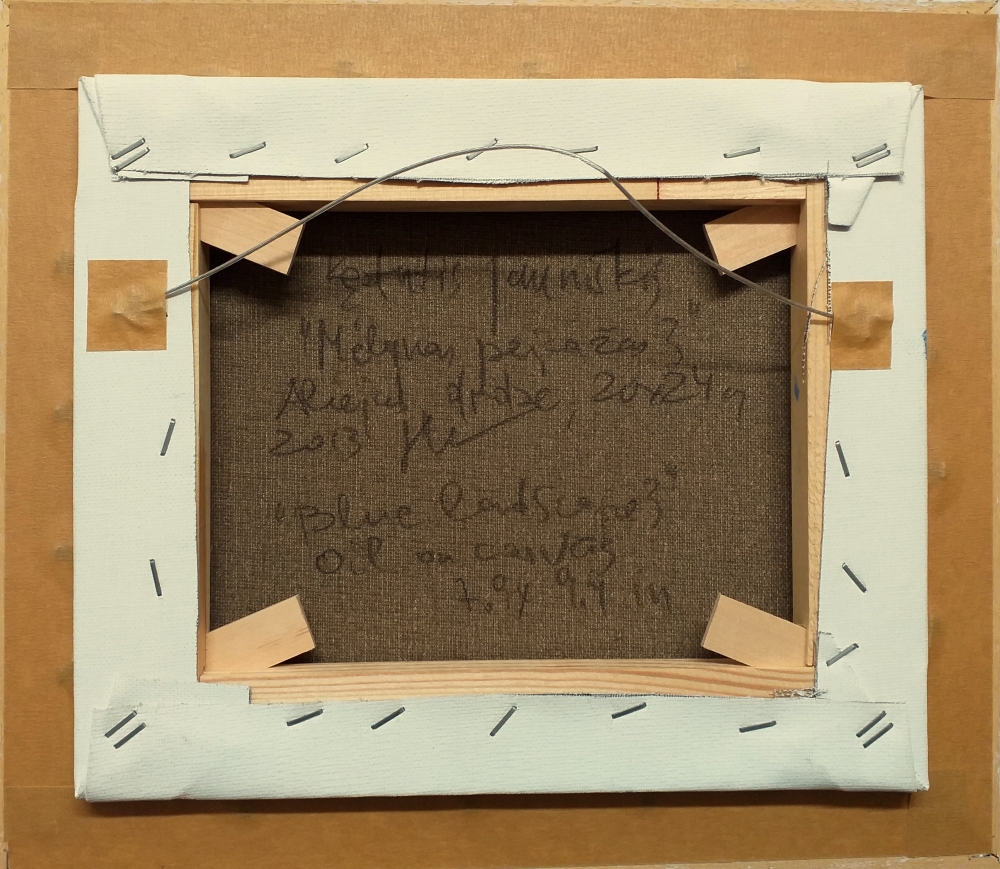 Kęstutis Jauniškis
"Mėlynas peizažas 3"
Aliejus, drobė, 20x24
2013
"Blue landscape 3"
Oil on canvas
7.9x 9.4 in